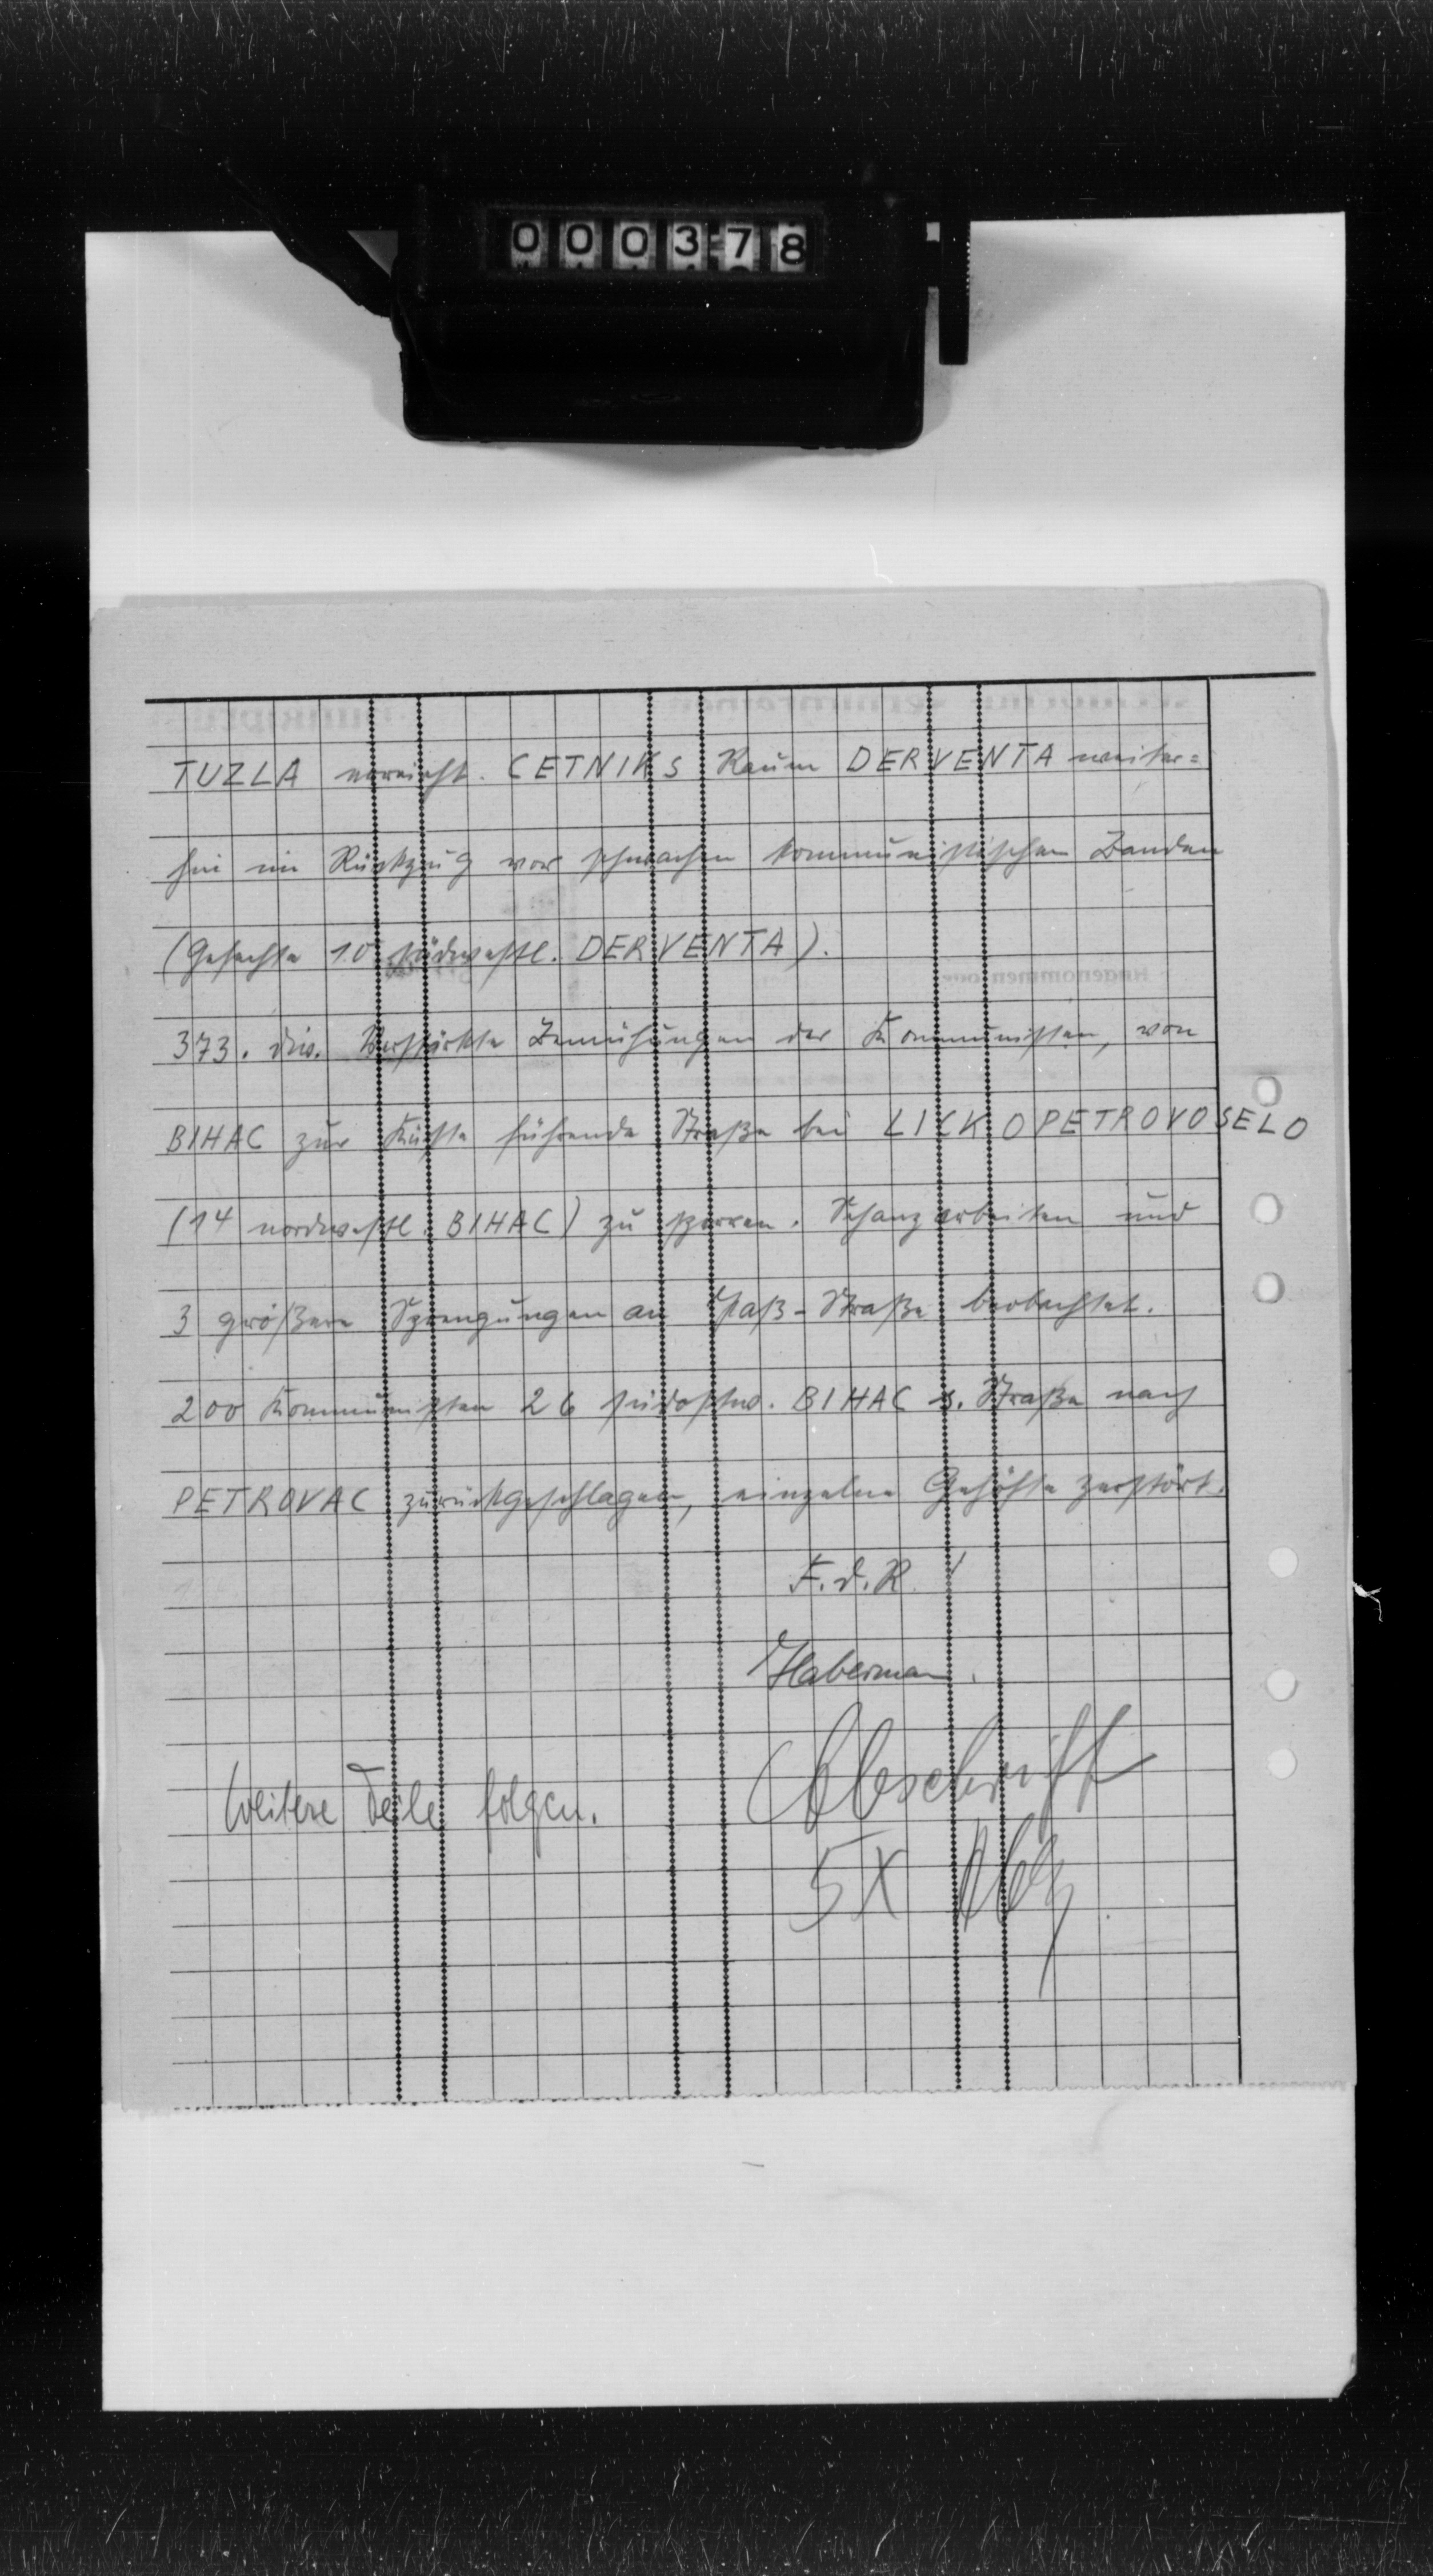 000378
TUZLA erreicht. CETNIKS Raum DERVENTA weiter=
hin im Rückzug vor schwachen kommunistischen Banden
(Gefechte 10 südwestl. DERVENTA).
373. Div. Verstärkte Bemühungen der Kommunisten, von
BIHAC zur Küste führende Straße bei LICKO PETROVOSELO
(14 nordwestl. BIHAC) zu sperren. Schanzarbeiten und
3 größere Sprengungen an Paß-Straße beobachtet.
200 Kommunisten 26 südostw. BIHAC a. Straße nach
PETROVAC zurückgeschlagen, einzelne Gehöfte zerstört.
F.d.R.
Haberman
Abschrift
Weitere Teile folgen.
5X